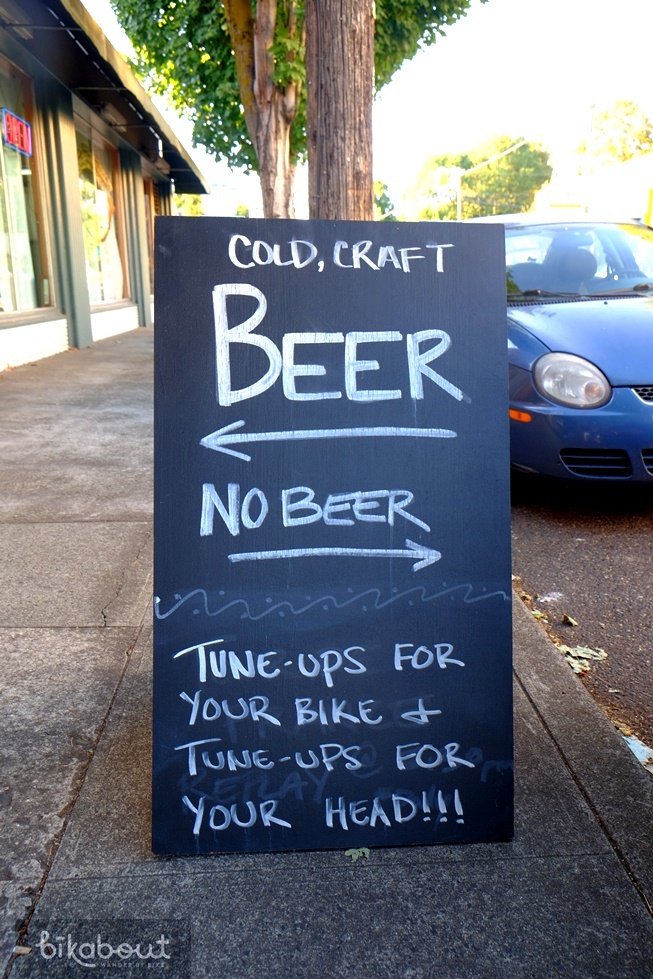 COLD, CRAFT
BEER
NO BEER
TUNE-UPS FOR
YOUR BIKE &
TUNE-UPS FOR
YOUR HEAD!!!
OPEN
bikabout